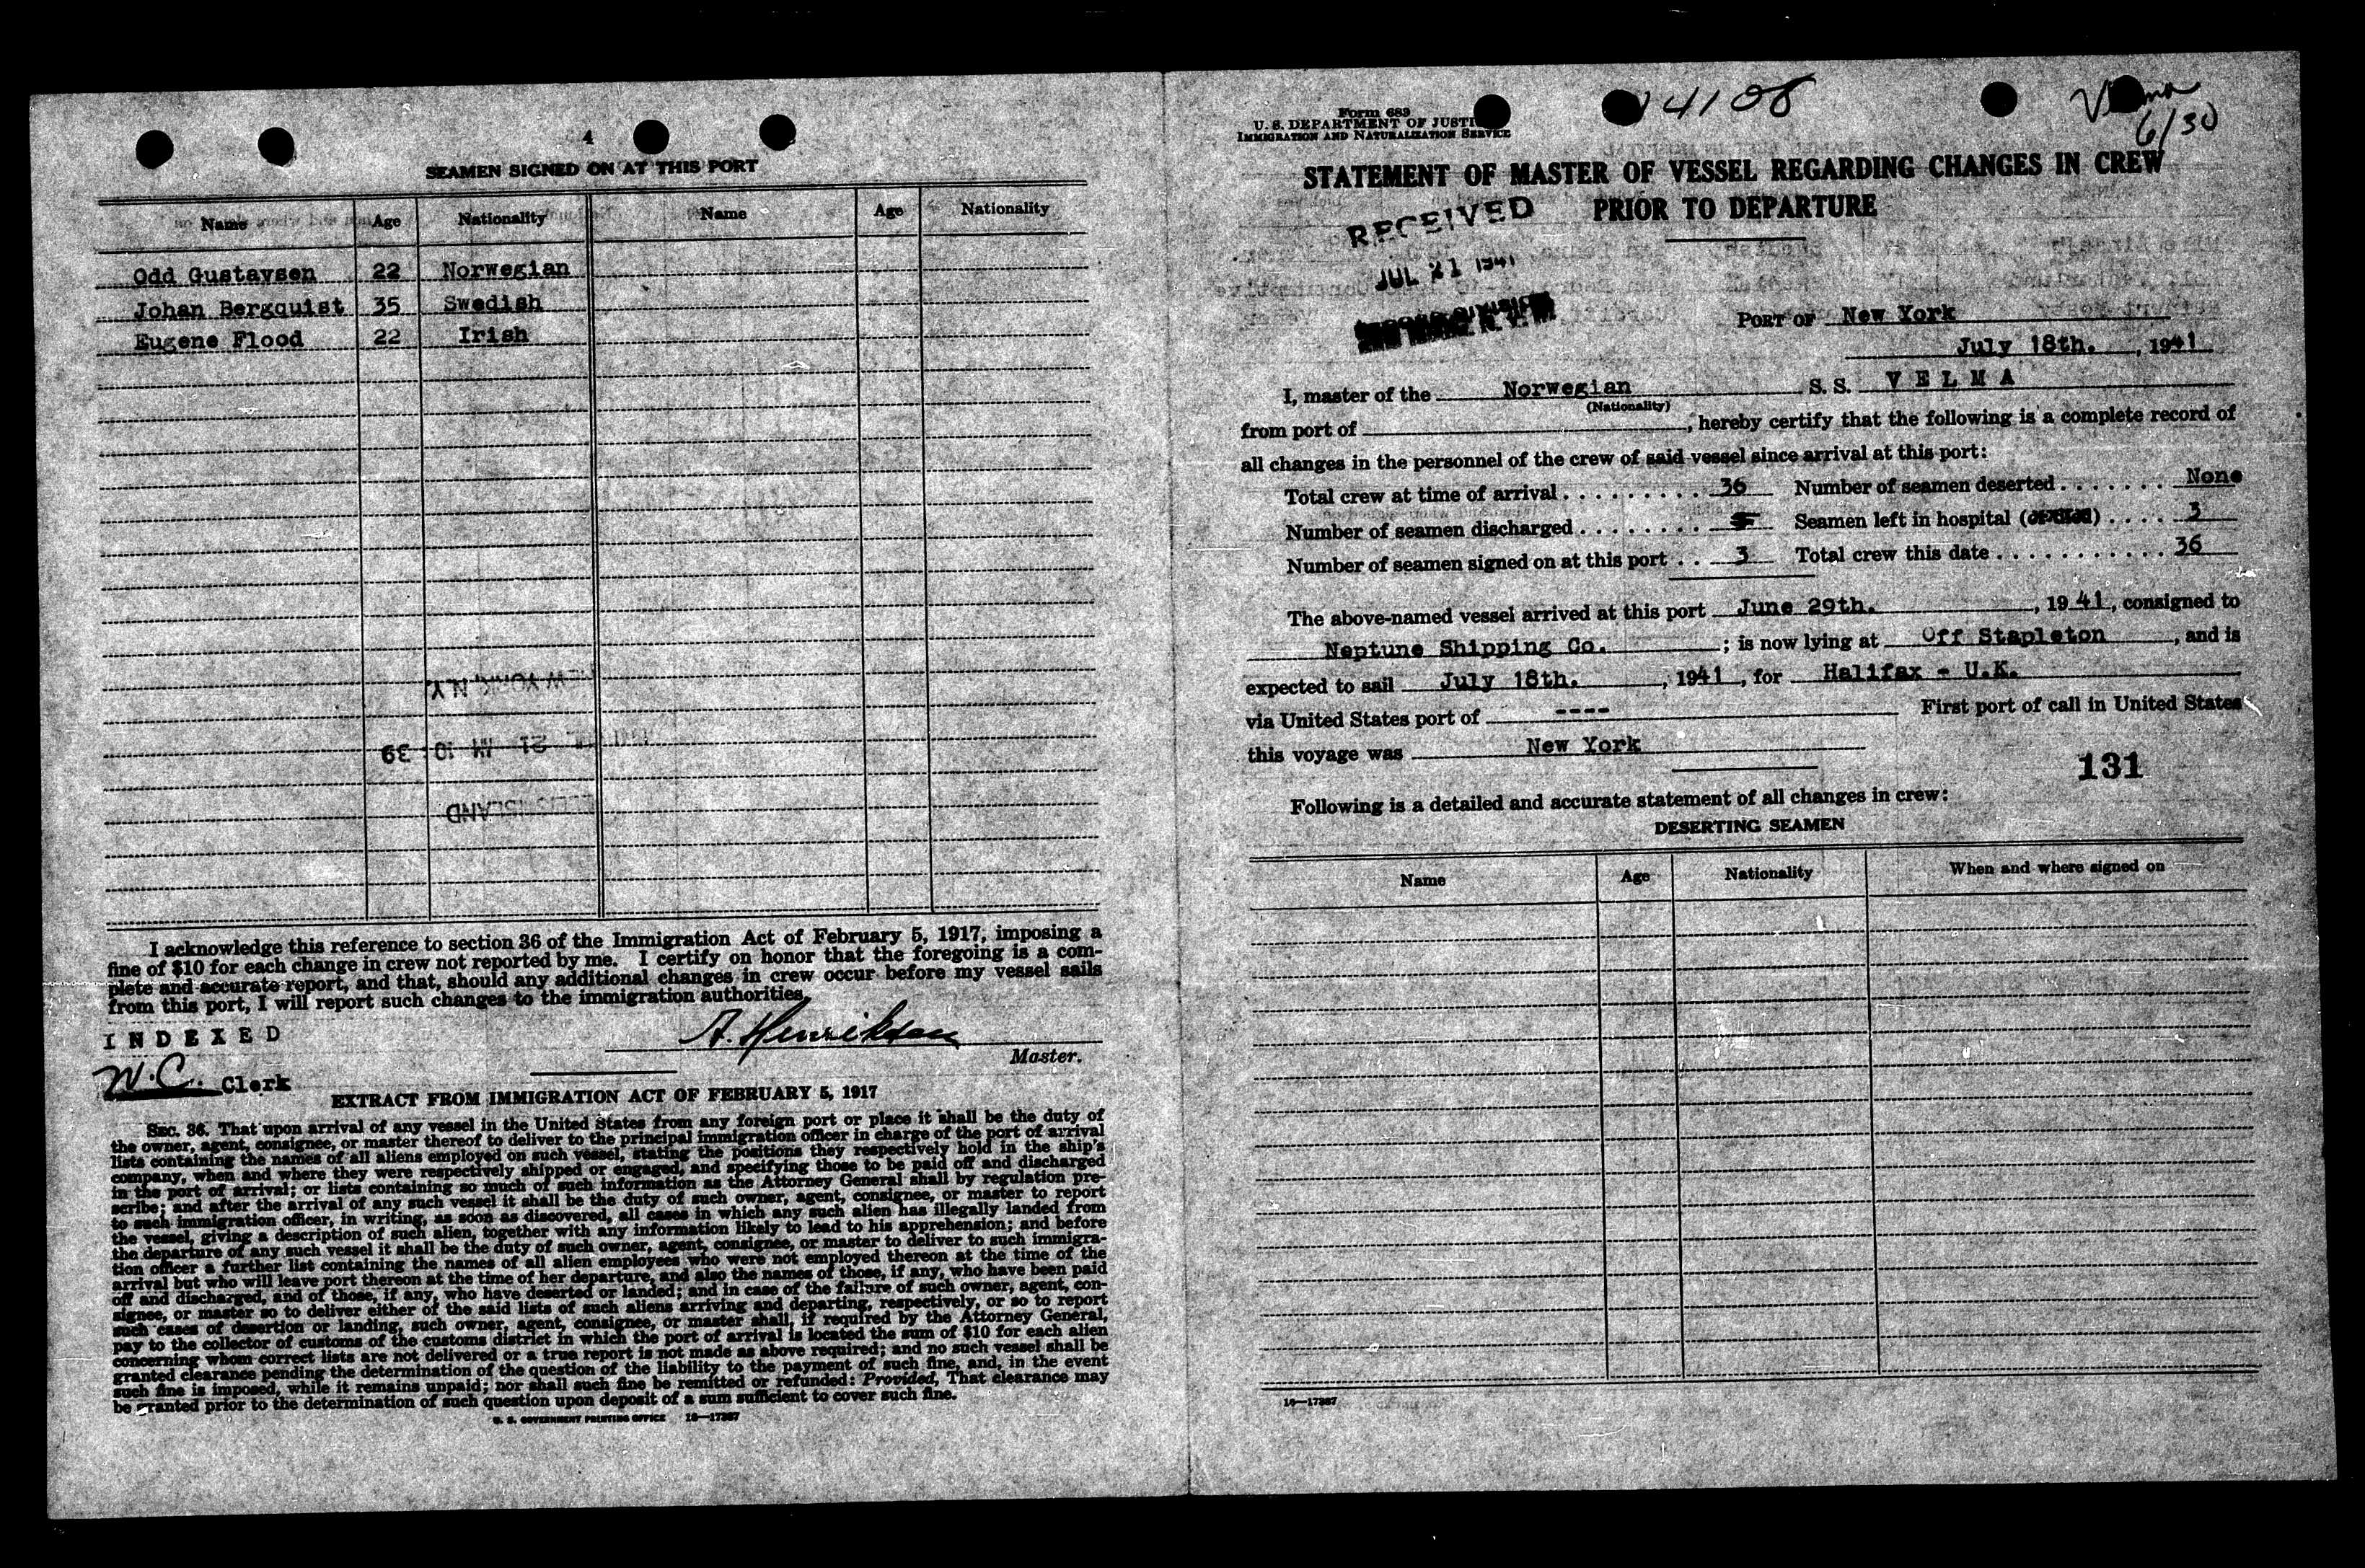 4
SEAMEN SIGNED ON AT THIS PORT
Name Age Nationality Name Age Nationality
Odd Gustavsen 22 Norwegian
Johan Bergquist 35 Swedish
Eugene Flood 22 Irish
NEW YORK, N.Y.
21 AM 10:39
ELLIS ISLAND
I acknowledge this reference to section 36 of the Immigration Act of February 5, 1917, imposing a
fine of $10 for each change in crew not reported by me. I certify on honor that the foregoing is a com-
plete and accurate report, and that, should any additional changes in crew occur before my vessel sails
from this port, I will report such changes to the immigration authorities.
INDEXED
A. Henriksen
Master.
W.C. Clerk
EXTRACT FROM IMMIGRATION ACT OF FEBRUARY 5, 1917
SEC. 36. That upon arrival of any vessel in the United States from any foreign port or place it shall be the duty of
the owner, agent, consignee, or master thereof to deliver to the principal immigration officer in charge of the port of arrival
lists containing the names of all aliens employed on such vessel, stating the positions they respectively hold in the ship's
company, when and where they were respectively shipped or engaged, and specifying those to be paid off and discharged
in the port of arrival; or lists containing so much of such information as the Attorney General shall by regulation pre-
scribe; and after the arrival of any such vessel it shall be the duty of such owner, agent, consignee, or master to report
to such immigration officer, in writing, as soon as discovered, all cases in which any such alien has illegally landed from
the vessel, giving a description of such alien, together with any information likely to lead to his apprehension; and before
the departure of any such vessel it shall be the duty of such owner, agent, consignee, or master to deliver to such immigra-
tion officer a further list containing the names of all alien employees who were not employed thereon at the time of the
arrival but who will leave port thereon at the time of her departure, and also the names of those, if any, who have been paid
off and discharged, and of those, if any, who have deserted or landed; and in case of the failure of such owner, agent, con-
signee, or master so to deliver either of the said lists of such aliens arriving and departing, respectively, or so to report
such cases of desertion or landing, such owner, agent, consignee, or master shall, if required by the Attorney General,
pay to the collector of customs of the customs district in which the port of arrival is located the sum of $10 for each alien
concerning whom correct lists are not delivered or a true report is not made as above required; and no such vessel shall be
granted clearance pending the determination of the question of the liability to the payment of such fine, and, in the event
such fine is imposed, while it remains unpaid; nor shall such fine be remitted or refunded: Provided, That clearance may
be granted prior to the determination of such question upon deposit of a sum sufficient to cover such fine.
U. S. GOVERNMENT PRINTING OFFICE 16—17387
Form 689
U. S. DEPARTMENT OF JUSTI
IMMIGRATION AND NATURALIZATION SERVICE
4108
6/30
STATEMENT OF MASTER OF VESSEL REGARDING CHANGES IN CREW
PRIOR TO DEPARTURE
RECEIVED
JUL 21 1941
PORT OF New York
July 18th., 1941
I, master of the Norwegian S. S. VELMA
(Nationality)
from port of , hereby certify that the following is a complete record of
all changes in the personnel of the crew of said vessel since arrival at this port:
Total crew at time of arrival 36 Number of seamen deserted None
Number of seamen discharged Seamen left in hospital 3
Number of seamen signed on at this port 3 Total crew this date 36
The above-named vessel arrived at this port June 29th., 1941, consigned to
Neptune Shipping Co. ; is now lying at Off Stapleton, and is
expected to sail July 18th., 1941, for Halifax - U.K.
via United States port of ---- First port of call in United States
this voyage was New York
131
Following is a detailed and accurate statement of all changes in crew:
DESERTING SEAMEN
Name Age Nationality When and where signed on
16—17387